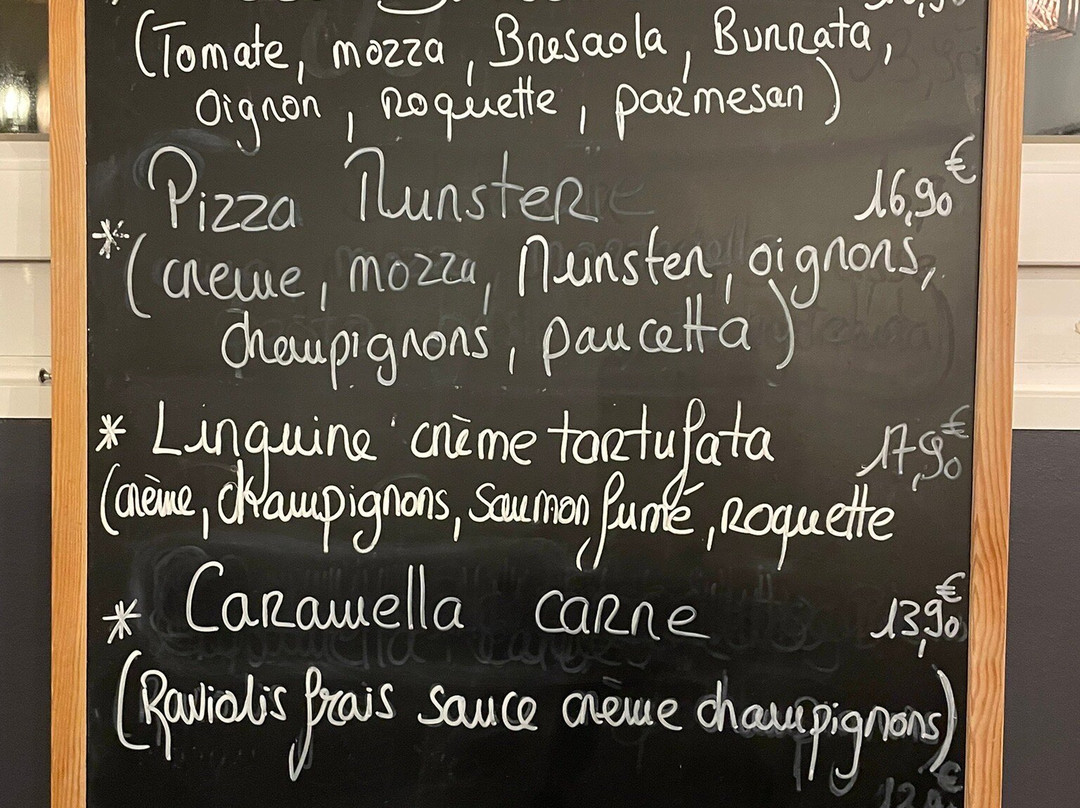 (Tomate, mozza, Bresaola, Burrata,
oignon, roquette, parmesan)
Pizza Munster 16,90€
*(creme, mozza, Munster, oignons,
champignons, pancetta)
* Linguine crème tartufata 17,90€
(crème, champignons, saumon fumé, roquette
* Caramella carne 13,90€
(Raviolis frais sauce crème champignons)